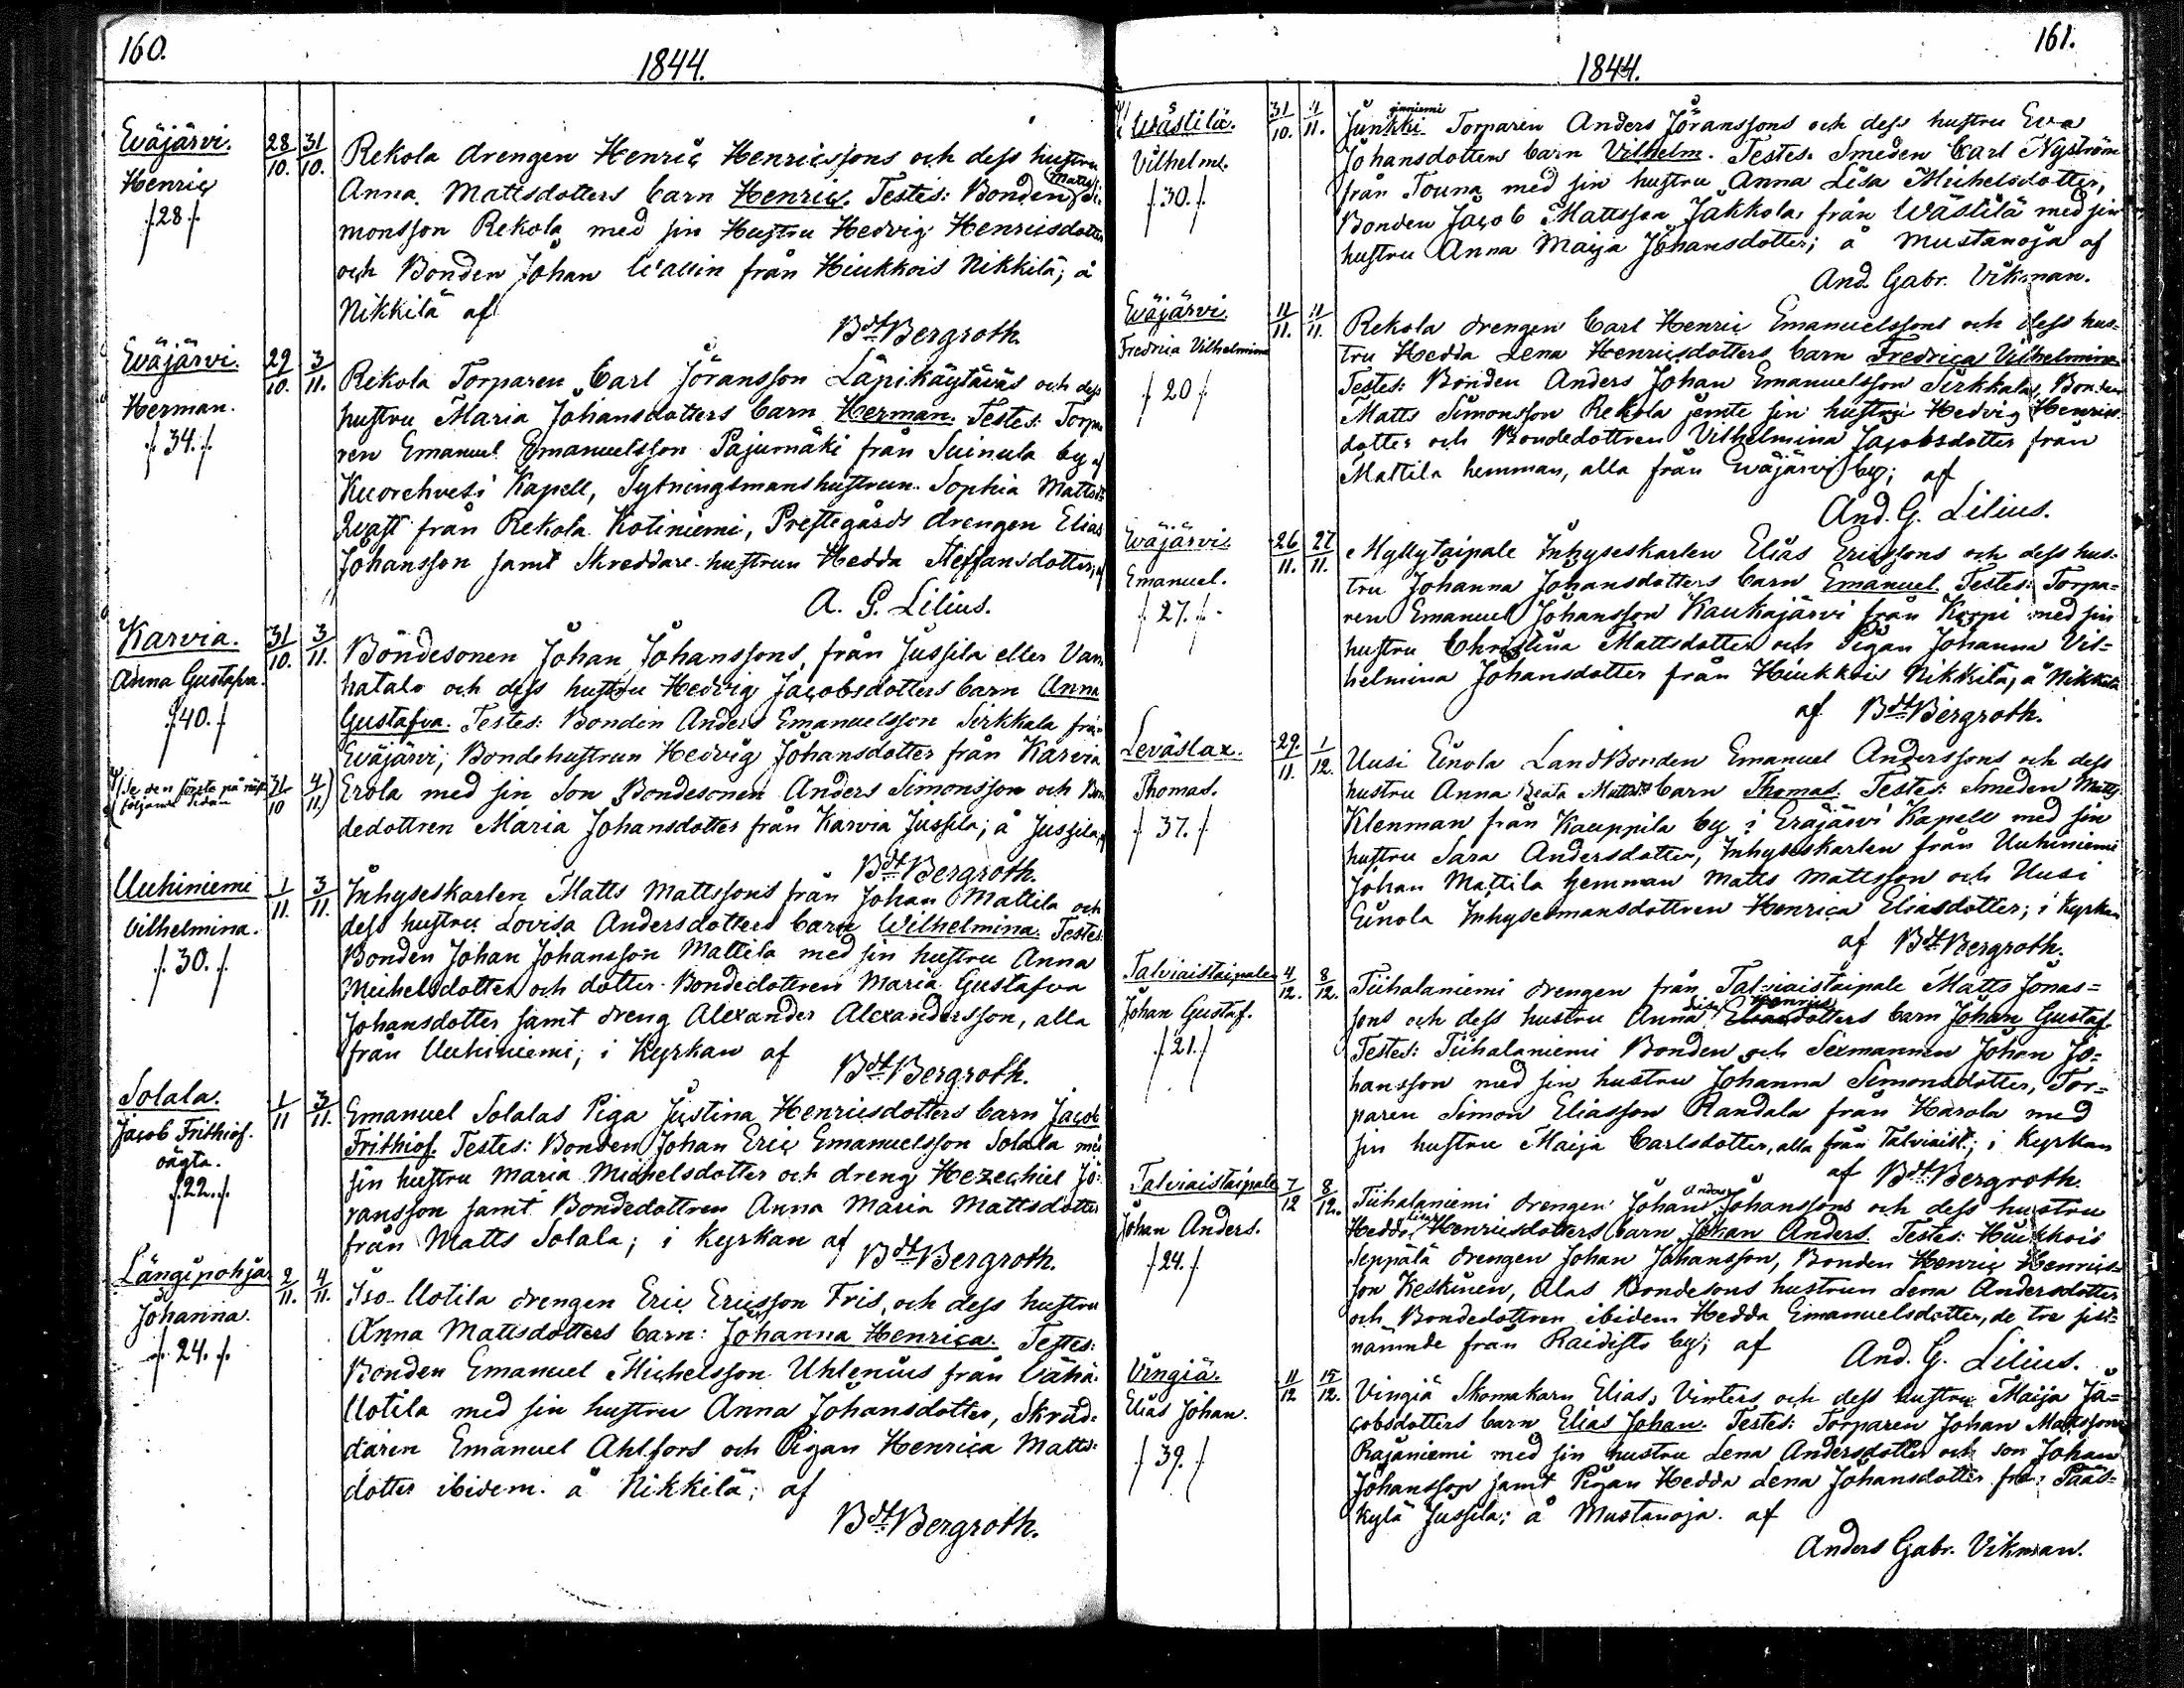 160.
1844.
Eväjärvi.
Henric
/.28./
28/10. 31/10.
Rekola drengen Henric Henricssons och dess hustru
Anna Mattsdotters barn Henric. Testis: Bonden Matts Si-
monsson Rekola med sin Hustru Hedvig Henricsdotter
och Bonden Johan Wallin från Hiukkois Nikkilä; å
Nikkilä af
Bdt Bergroth.
Eväjärvi.
Herman.
/.34./
29/10. 3/11.
Rekola Torparen Carl Jöransson Läpikäytäväs och dess
hustru Maria Johansdotters barn Herman. Testes: Torpa
ren Emanuel Emanuelsson Pajumäki från Suinula by af
Kuorehvesi Kapell, Sytningsmanshustrun Sophia Mattsdr
Qvast från Rekola Kotiniemi, Prestegårds drengen Elias
Johansson samt Skreddare-hustrun Hedda Steffansdotter; af
A. G. Lilius.
Karvia.
Anna Gustafva.
/.40./
31/10. 3/11.
Bondesonen Johan Johanssons, från Jussila eller Van
hatalo och dess hustru Hedvig Jacobsdotters barn Anna
Gustafva. Testes: Bonden Anders Emanuelsson Sirkkala från
Eväjärvi; Bondehustrun Hedvig Johansdotter från Karvia
(Se den förste på näst
följande sidan 31/10 4/11)
Erola med sin Son Bondesonen Anders Simonsson och Bon
dedottren Maria Johansdotter från Karvia Jussila; å Jussila, af
Bdt Bergroth.
Uuhiniemi
Vilhelmina.
/.30./
1/11. 3/11.
Inhyseskarlen Matts Mattssons från Johan Mattila och
dess hustru Lovisa Andersdotters barn Wilhelmina. Testes:
Bonden Johan Johansson Mattila med sin hustru Anna
Michelsdotter och dotter Bondedottren Maria Gustafva
Johansdotter samt dreng Alexander Alexandersson, alla
från Uuhiniemi; i Kyrkan af
Bdt Bergroth.
Solala.
Jacob Frithiof.
oägta.
/.22./
1/11 3/11.
Emanuel Solalas Piga Justina Henricsdotters barn Jacob
Frithiof. Testes: Bonden Johan Eric Emanuelsson Solala med
sin hustru Maria Michelsdotter och dreng Hezechiel Jö-
ransson samt Bondedottren Anna Maria Mattsdotter
från Matts Solala; i Kyrkan af
Bdt Bergroth.
Längipohja
Johanna.
/.24./
2/11. 4/11.
Iso-Uotila drengen Eric Ericsson Fris, och dess hustru
Anna Mattsdotters barn: Johanna Henrica. Testes:
Bonden Emanuel Michelsson Uhlenius från Vähä-
Uotila med sin hustru Anna Johansdotter, Skräd-
daren Emanuel Ahlfors och Pigan Henrica Matts-
dotter ibidem. å Nikkilä; af
Bdt Bergroth.
161.
1844.
Wästilä.
Vilhelm.
/.30./
31/10. 4/11.
Junkki niemi Torparen Anders Jöranssons och dess hustru Eva
Johansdotters barn Vilhelm. Testes: Smeden Carl Nyström
från Touna med sin hustru Anna Lisa Michelsdotter,
Bonden Jacob Mattsson Jakkola från Wästilä med sin
hustru Anna Maija Johansdotter; å Mustanoja af
And. Gabr. Vikman.
Eväjärvi.
Fredrica Vilhelmina
/.20./
11/11. 11/11.
Rekola drengen Carl Henric Emanuelssons och dess hus-
tru Hedda Lena Henricsdotters barn Fredrica Vilhelmina
Testes: Bonden Anders Johan Emanuelsson Sirkkala, Bonden
Matts Simonsson Rekola jemte sin hustru Hedvig Henrics-
dotter och Bondedottren Vilhelmina Jacobsdotter från
Mattila hemman, alla från Eväjärvi by; af
And. G. Lilius.
Eväjärvi
Emanuel.
/.27./
26/11. 27/11.
Myllytaipale Inhyseskarlen Elias Ericssons och dess hus-
tru Johanna Johansdotters barn Emanuel. Testes: Torpa-
ren Emanuel Johansson Kaukajärvi från Korpi med sin
hustru Christina Mattsdotter och Pigan Johanna Vil-
helmina Johansdotter från Hiukkois Nikkilä, å Nikkilä
af Bdt Bergroth.
Leväslax.
Thomas.
/.37./
29/11. 1/12.
Uusi Einola LandBonden Emanuel Anderssons och dess
hustru Anna Beata Mattsdrs barn Thomas. Testes: Smeden Matts
Klenman från Kauppila by i Eräjärvi Kapell med sin
hustru Sara Andersdotter, Inhyseskarlen från Uuhiniemi
Johan Mattila hemman Matts Mattsson och Uusi
Einola Inhysesmansdottren Henrica Eliasdotter; i Kyrkan
af Bdt Bergroth.
Talviaistaipale
Johan Gustaf.
/.21./
4/12. 8/12.
Tiihalaniemi drengen från Talviaistaipale Matts Jonas-
sons och dess hustru Anna Lisa Henrics Eliasdotters barn Johan Gustaf.
Testes: Tiihalaniemi Bonden och Sexmannen Johan Jo-
hansson med sin hustru Johanna Simonsdotter, Tor-
paren Simon Eliasson Randala från Harola med
sin hustru Maija Carlsdotter, alla från Talviaist.; i Kyrkan
af Bdt Bergroth.
Talviaistaipale
Johan Anders.
/.24./
7/12 8/12.
Tiihalaniemi drengen Johan Anders Johanssons och dess hustru
Hedda Lisa Henricsdotters barn Johan Anders. Testes: Hiukkois
Seppälä drengen Johan Johansson, Bonden Henric Henrics-
son Keskinen, Alas Bondesons hustrun Lena Andersdotter
och Bondedottren ibidem Hedda Emanuelsdotter, de tre sist-
nämnde från Raidisto by; af
And. G. Lilius.
Vingiä.
Elias Johan.
/.39./
11/12 15/12.
Vingiä Skomakarn Elias Vinters och dess hustru Maija Ja-
cobsdotters barn Elias Johan. Testes: Torparen Johan Mattsson
Rajaniemi med sin hustru Lena Andersdotter och son Johan
Johansson samt Pigan Hedda Lena Johansdotter från Pääs-
kylä Jussila; å Mustanoja. af
Anders Gabr. Vikman.